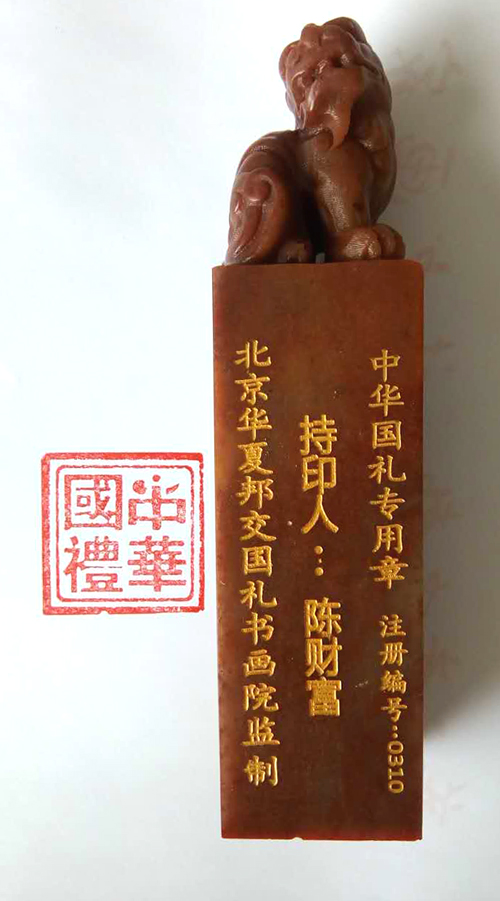 中华国礼专用章 注册编号:0310
持印人: 陈财富
北京华夏邦交国礼书画院监制
中華
國禮